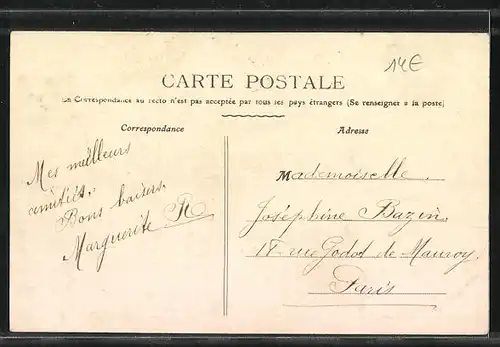 14€
CARTE POSTALE
La Correspondance au recto n'est pas acceptée par tous les pays étrangers (Se renseigner à la poste)
Correspondance
Mes meilleurs
amitiés.
Bons baisers.
Marguerite R
Adresse
Mademoiselle.
Joséphine Bazin.
18 rue Godot de Mauroy.
Paris